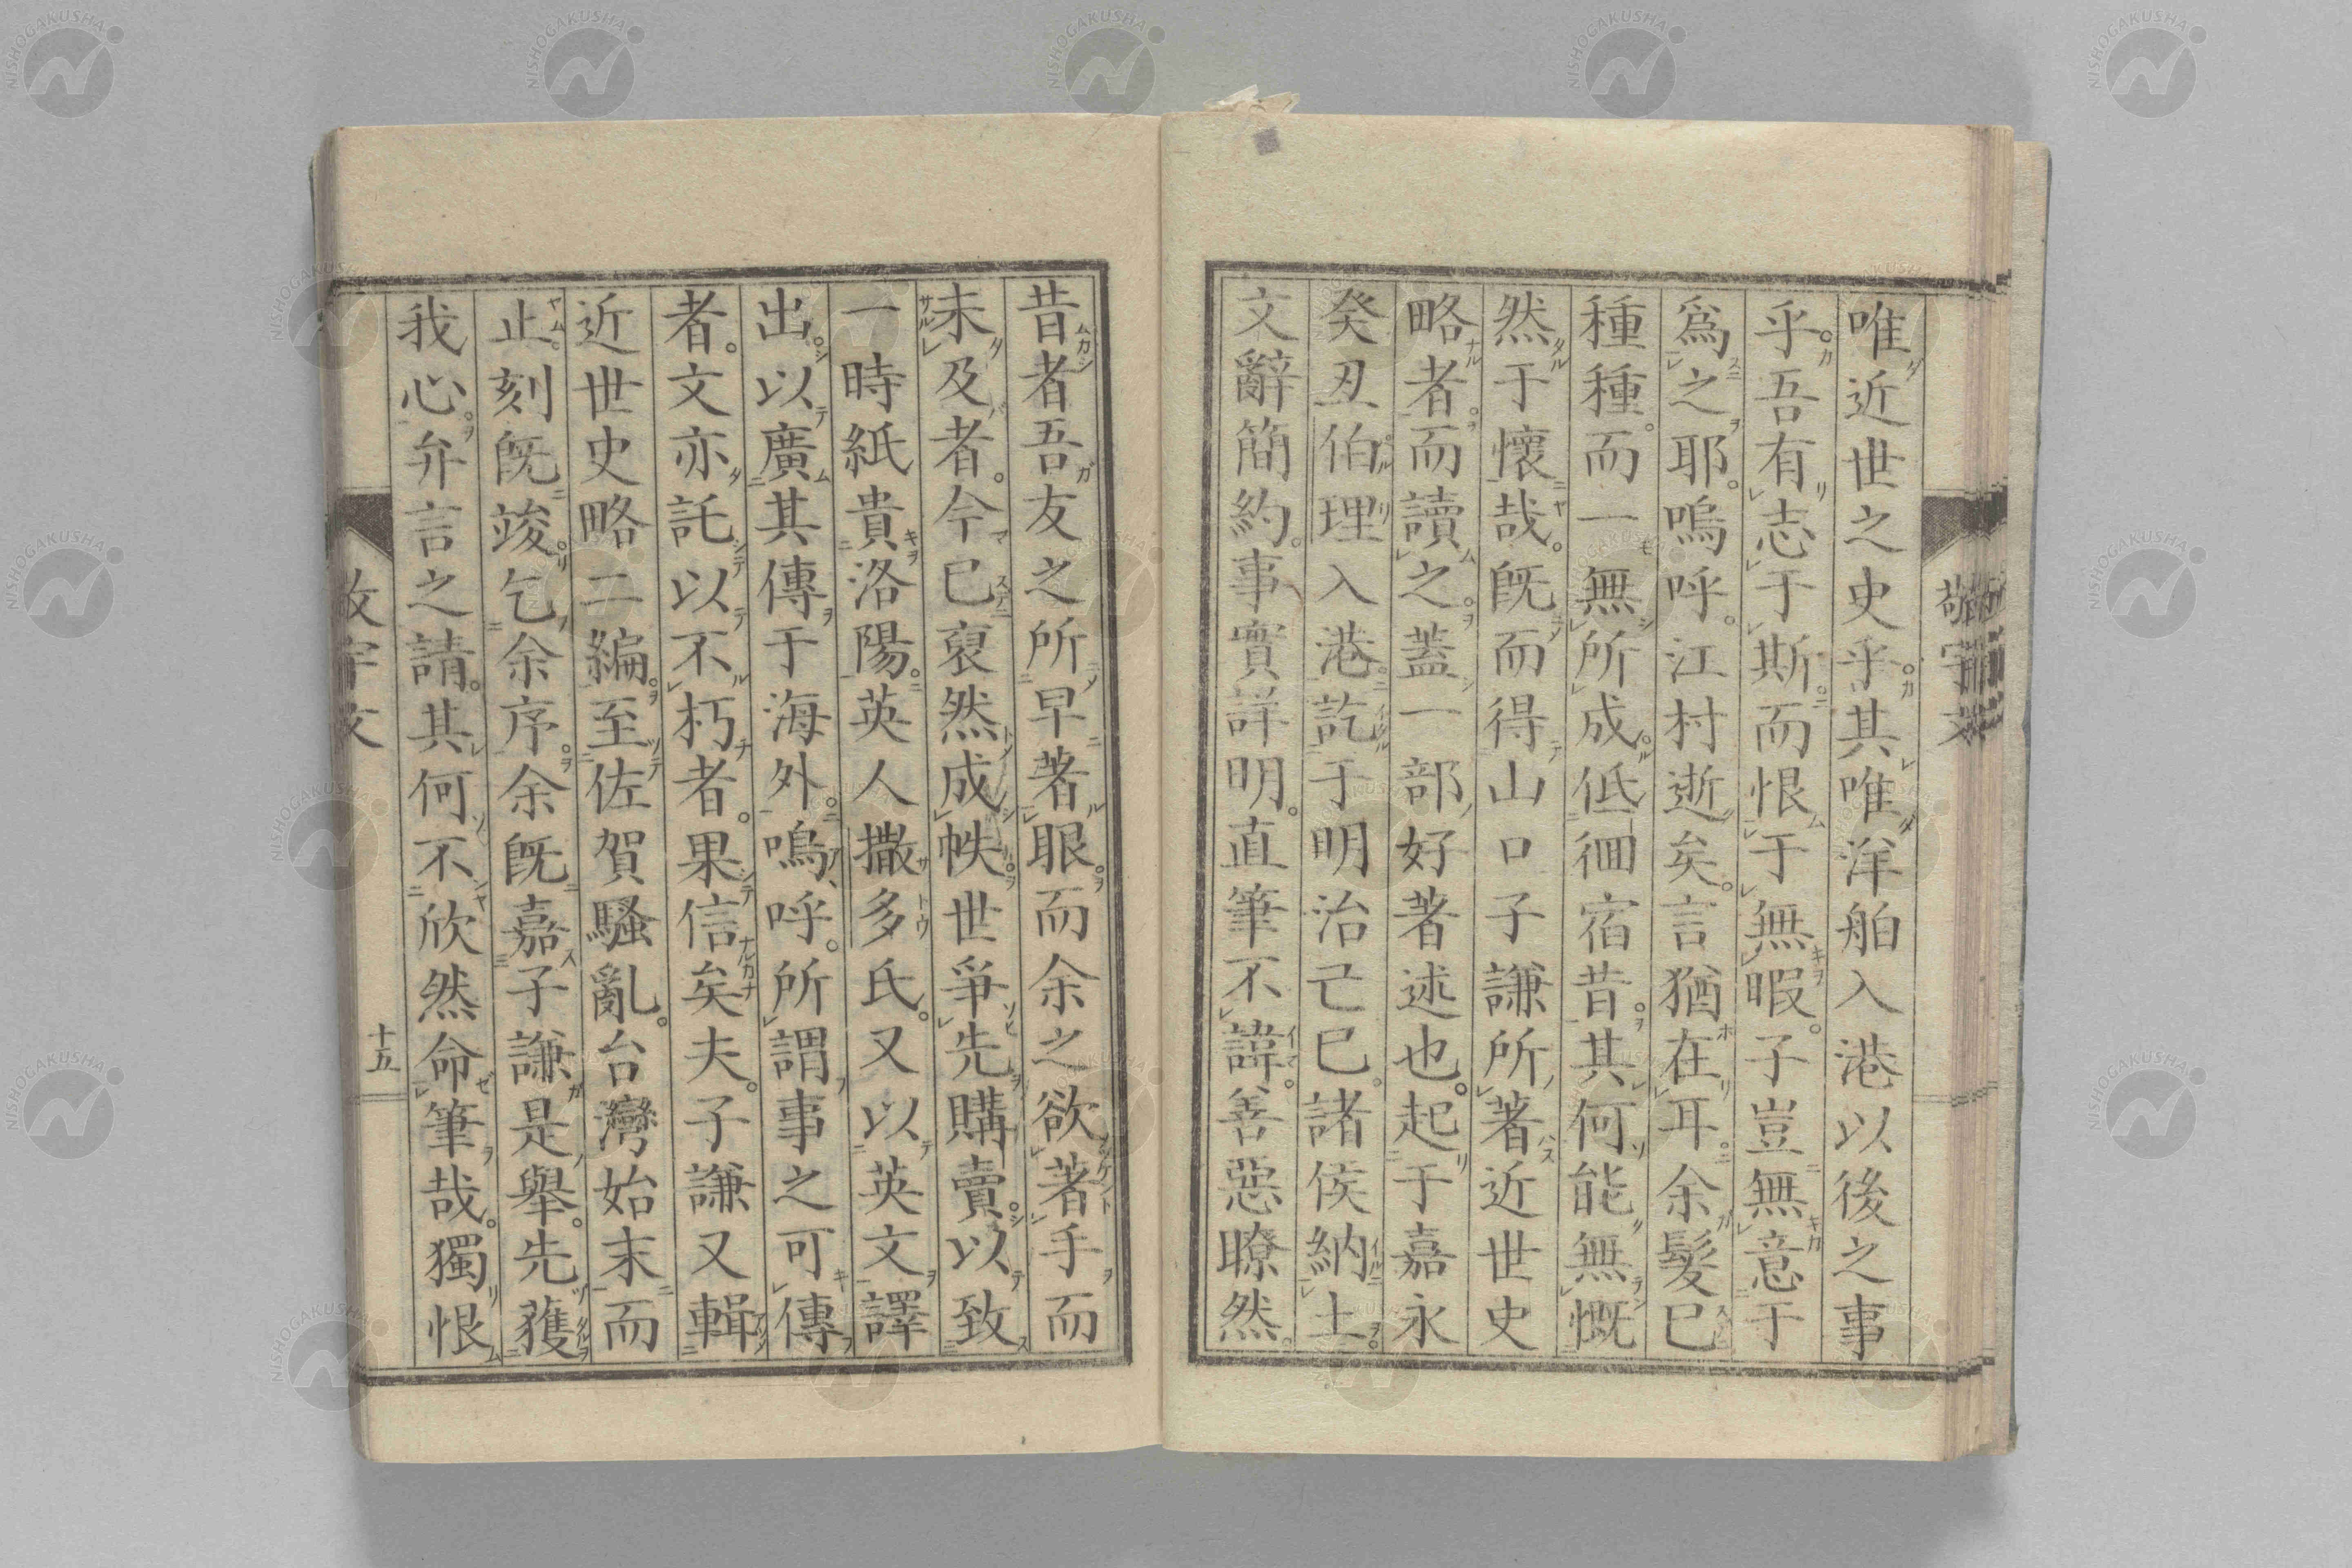 唯近世之史乎。其唯洋舶入港以後之事
乎。吾有志于斯。而恨于無暇。子豈無意于
爲之耶。嗚呼。江村逝矣。言猶在耳。余髮已
種種。而一無所成。低徊宿昔。其何能無慨
然于懷哉。既而得山口子謙所著近世史
略者。而讀之。蓋一部好著述也。起于嘉永
癸丑伯理入港。訖于明治己巳。諸侯納土。
文辭簡約。事實詳明。直筆不諱。善惡瞭然。
昔者吾友之所早著眼。而余之欲著手而
未及者。今已裒然成帙。世爭先購賣。以致
一時紙貴洛陽。英人撒多氏。又以英文譯
出。以廣其傳于海外。嗚呼。所謂事之可傳
者。文亦託以不朽者。果信矣夫。子謙又輯
近世史略二編。至佐賀騷亂。台灣始末而
止。刻既竣。乞余序。余既嘉子謙是舉。先獲
我心。弁言之請。其何不欣然命筆哉。獨恨
敬宇文
十五
NISHOGAKUSHA